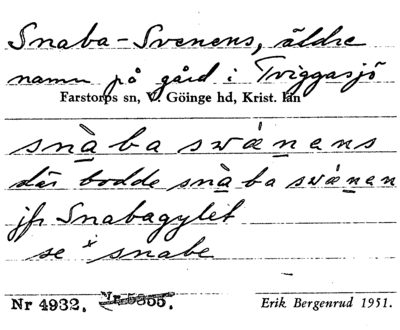 Snaba-Svenens, äldre
namn på gård i Tviggasjö
Farstorps sn, V. Göinge hd, Krist. län
snàba swánens
där bodde snàba swánen
jfr Snabagylet
se ˣsnabe
Nr 4932. Nr 5355.
Erik Bergenrud 1951.